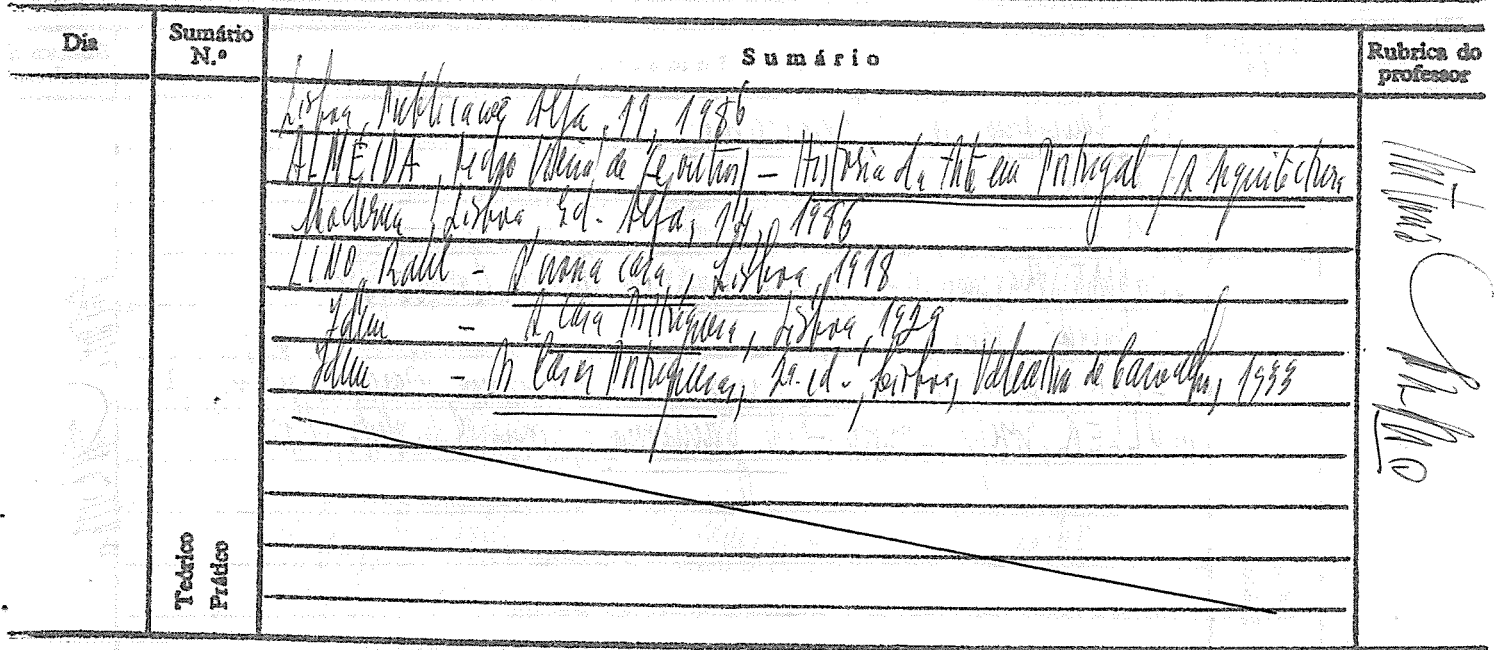 Dia
Sumário N.º
Sumário
Rubrica do professor
Lisboa, Publicações Alfa, 11, 1986
ALMEIDA, Pedro Vieira de (e outros) - História da Arte em Portugal / A Arquitectura
Moderna, Lisboa, Ed. Alfa, 14, 1986
LINO, Raul - A nossa casa, Lisboa, 1918
Idem - A Casa Portuguesa, Lisboa, 1929
Idem - As Casas Portuguesas, 2a. ed., Lisboa, Valentim de Carvalho, 1933
Teórico
Prático